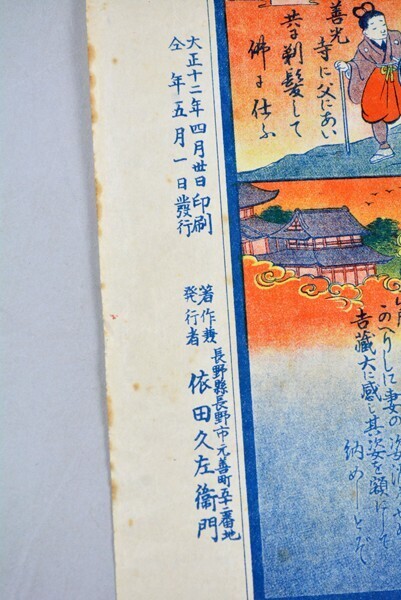 善光
寺に父にあい
共に剃髪して
佛に仕ふ
大正十二年四月卅日印刷
仝年五月一日發行
著作兼
発行者
長野縣長野市元善町五十二番地
依田久左衞門
かへりしに妻の姿
吉藏大に感じ其姿を額にして
納めしとぞ